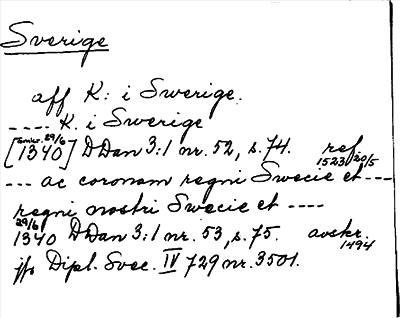 Sverige
aff K: i Swerige.
---- K. i Swerige
[1340] omkr. 29/6 DDan 3:1 nr. 52, s. 74. ref 1523 20/5
--- ac coronam regni Swecie et ---
regni nostri Swecie et ----
29/6 1340 DDan 3:1 nr. 53, s. 75. avskr. 1494
jfr Dipl. Svec. IV 729 nr. 3501.